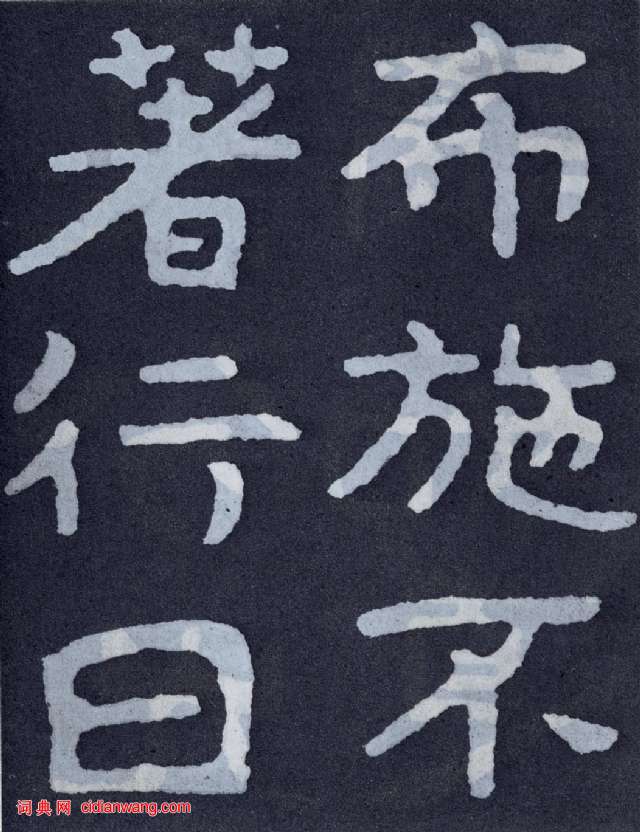 布施不
著行曰
词典网 cidianwang.com